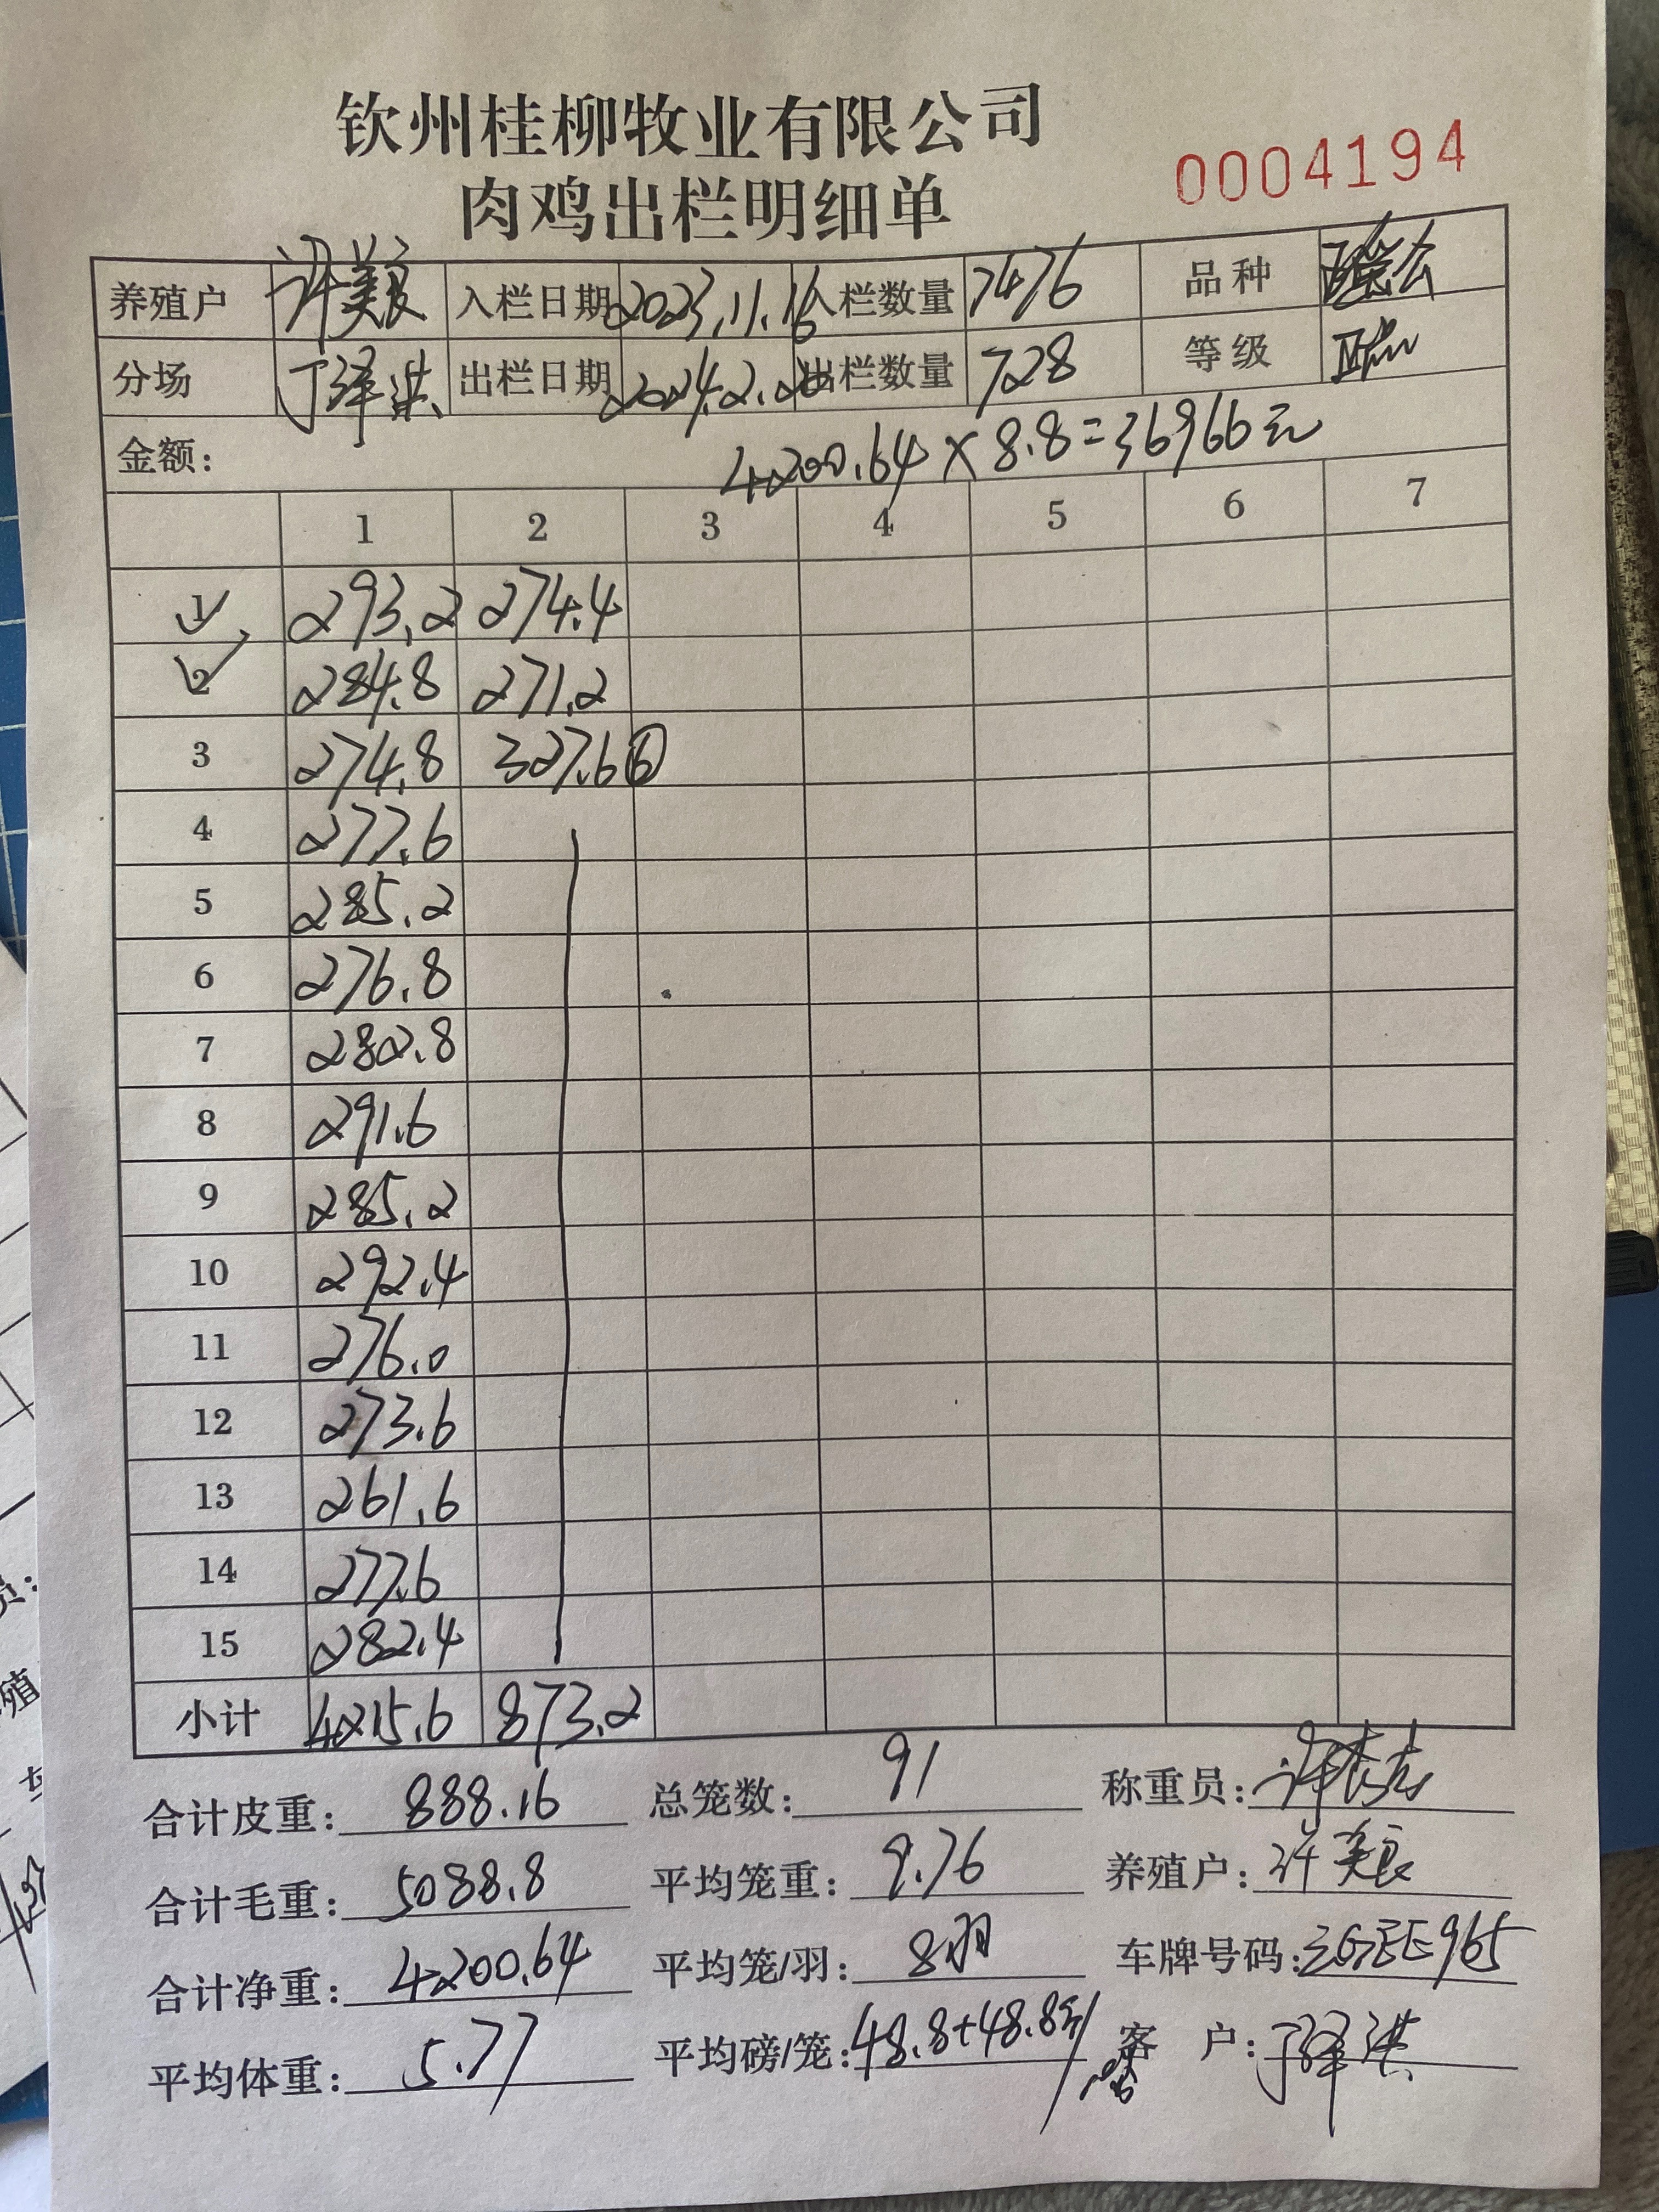 钦州桂柳牧业有限公司
肉鸡出栏明细单
0004194
养殖户 许美良 入栏日期 2023.11.16 入栏数量 7476 品种
分场 丁泽洪 出栏日期 2024.2.20 出栏数量 728 等级
金额: 4200.64×8.8=36966元
1 2 3 4 5 6 7
1 293.2 274.4
2 284.8 271.2
3 274.8 327.6 ⑥
4 277.6
5 285.2
6 276.8
7 282.8
8 291.6
9 285.2
10 292.4
11 276.0
12 273.6
13 261.6
14 277.6
15 282.4
小计 4215.6 873.2
合计皮重: 888.16 总笼数: 91 称重员:
合计毛重: 5088.8 平均笼重: 9.76 养殖户: 许美良
合计净重: 4200.64 平均笼/羽: 8羽 车牌号码:
平均体重: 5.77 平均磅/笼: 48.8+48.8 客 户: 丁泽洪